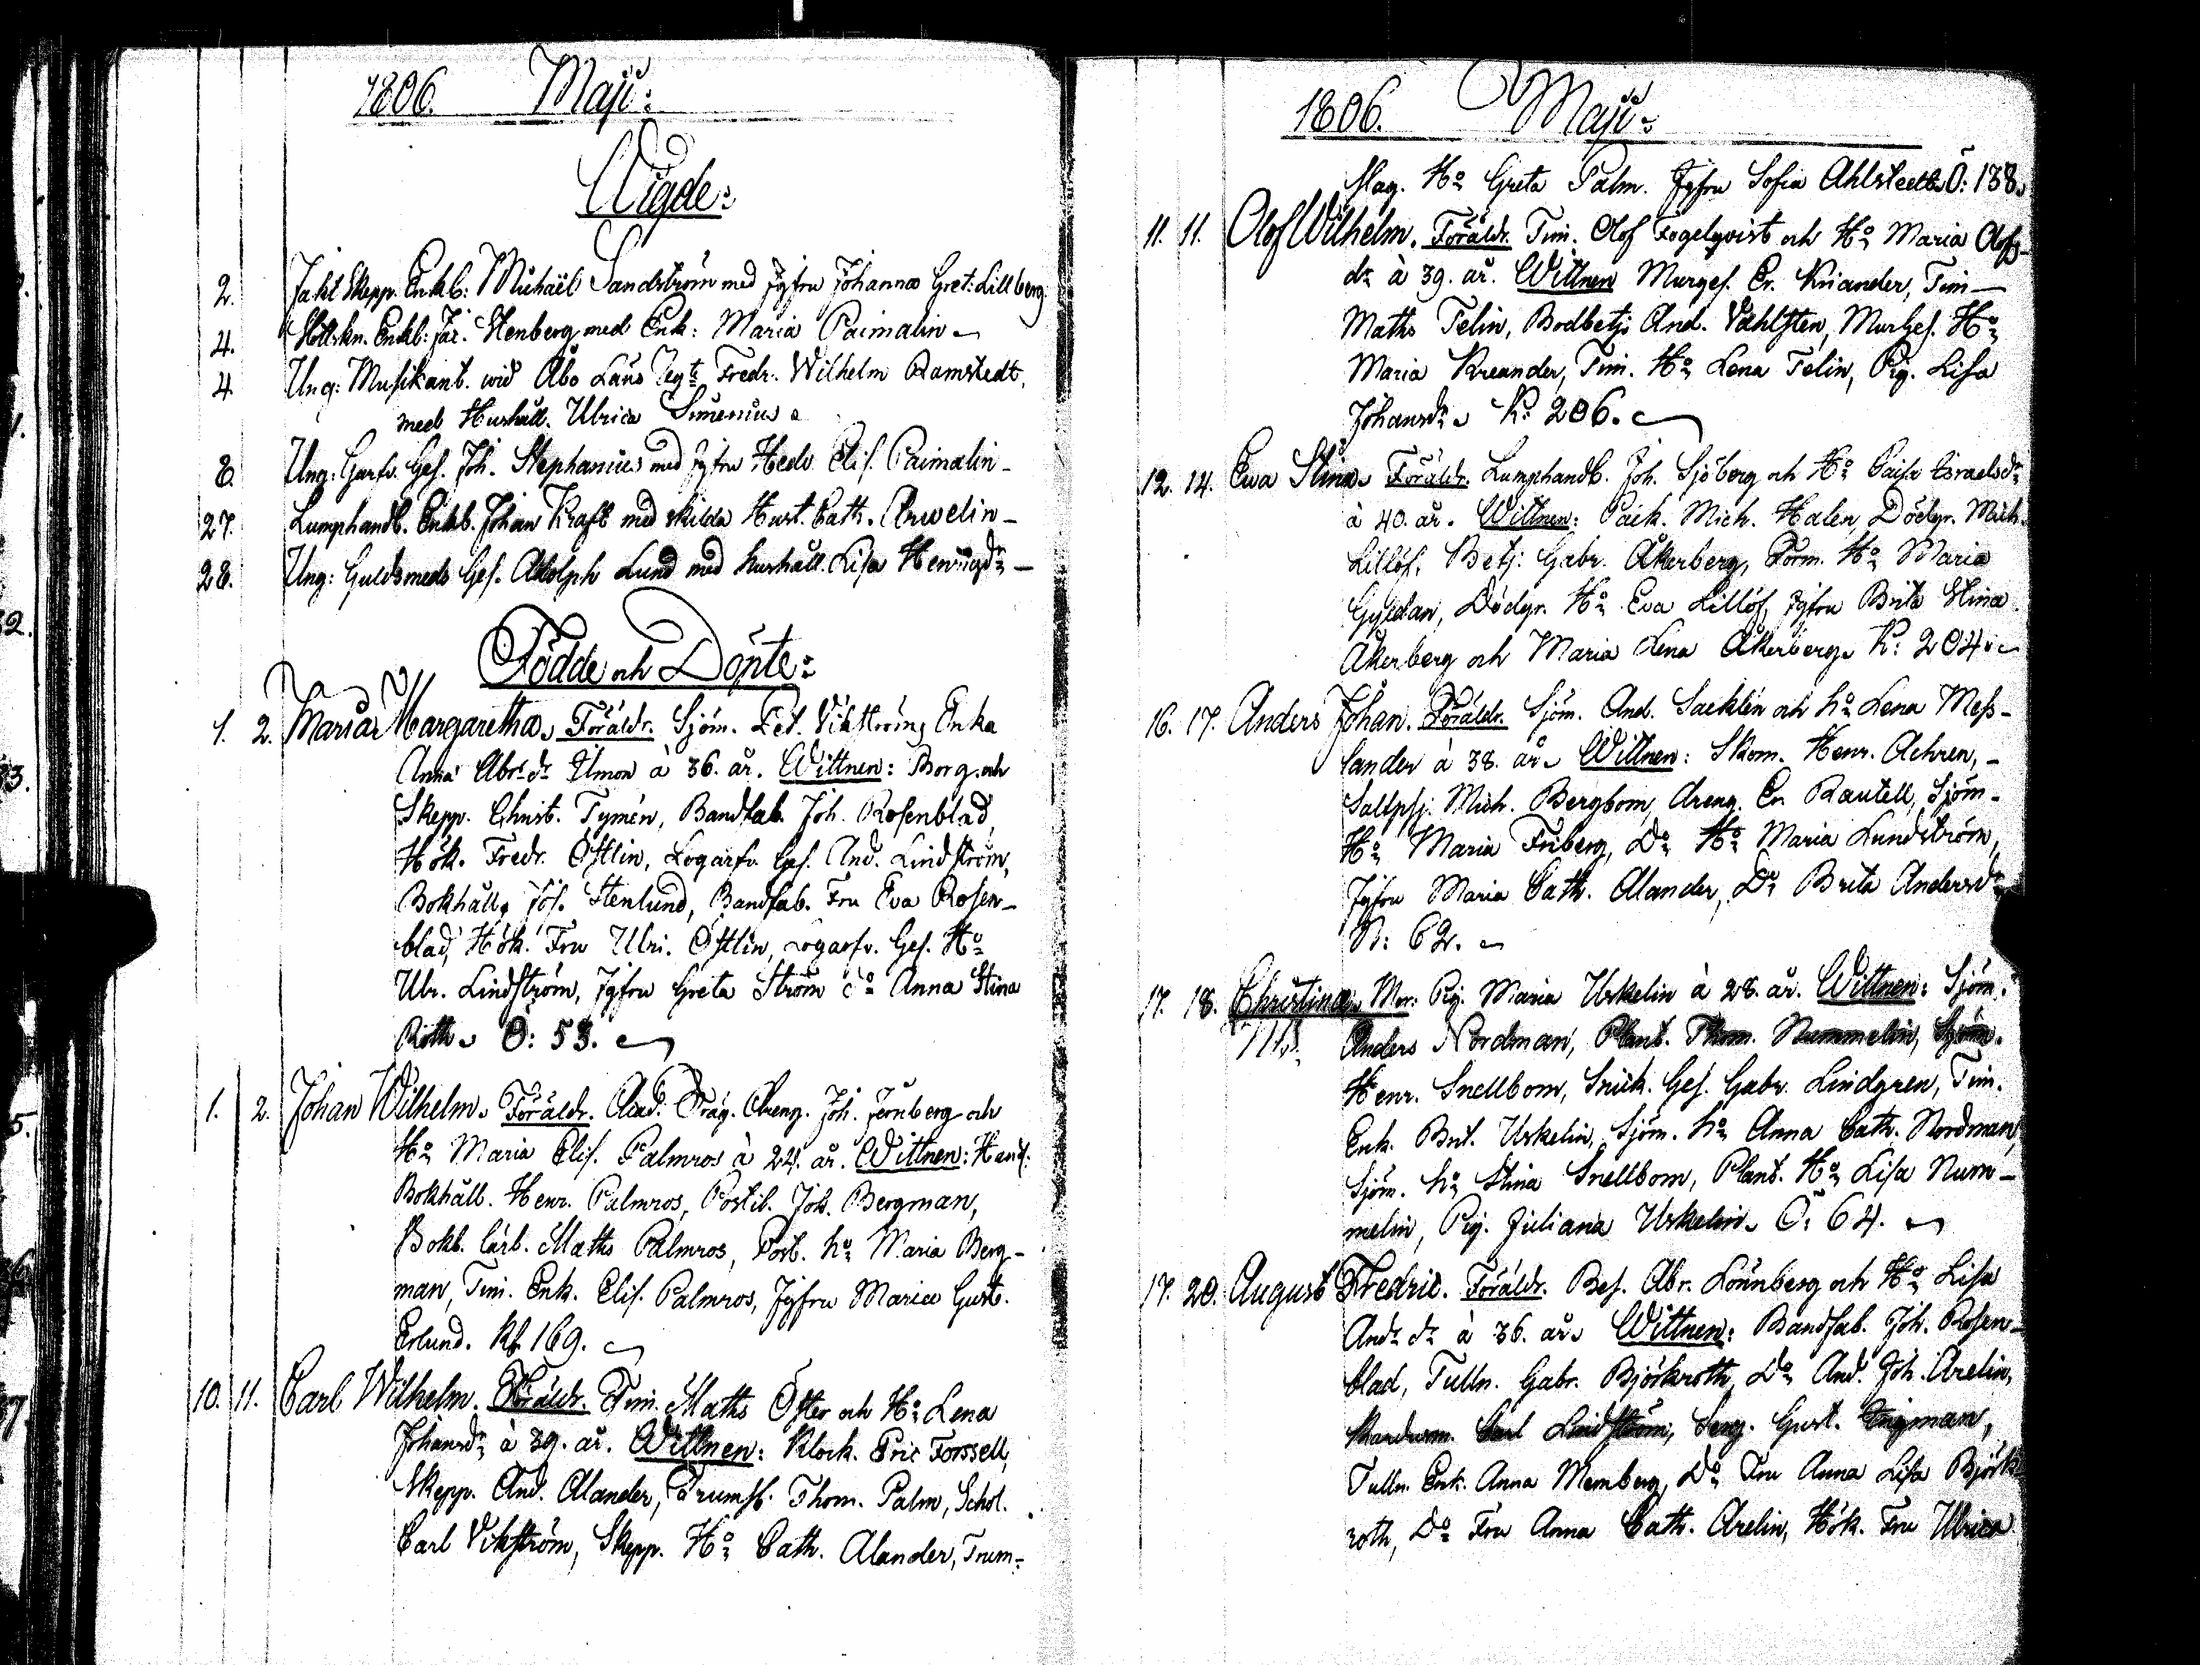 1806. Maji:
Wigde:
2. Jakt Skepp. Enkl: Michaël Sandström med Jgfru Johanna Gret. Lillberg.
4. Enkl: Jac. Stenberg med Enk: Maria Paimalin
4. Ung: Musikant. wid Åbo Läns Regte Fredr. Wilhelm Ramstedt,
med Hushåll. Ulrica Simenius
8. Ung: Garfv. Ges. Joh. Stephanius med Jgfru Hedv. Elis. Paimalin
27. Lumphandl. Enkl. Johan Kraft med skilda Hust. Cath. Arwelin
28. Ung: Guldsmeds Ges. Adolph Lund med hushåll. Lisa Henricsdr
Födde och Döpte:
1. 2. Maria Margaretha. Föräldr. Sjöm. Pet. Vikströms Enka
Anna Abr. dr Ilmon à 36. år. Wittnen: Borg. och
Skepp. Christ. Tymén, Bandfab. Joh. Rosenblad,
Hök. Fredr. Östlin, Logarfv. Ges. And. Lindström,
Bokhåll. Jos. Stenlund, Bandfab. Fru Eva Rosen-
blad, Hök. Fru Ulri. Östlin, Logarfv. Ges. Ho
Ulr. Lindström, Jgfru Greta Ström do Anna Stina
Roth. Ö: 53.
1. 2. Johan Wilhelm. Föräldr. Acad. Träg. dreng. Joh. Jernberg och
Ho Maria Elis. Palmros à 24. år. Wittnen: Hand.
Bokhåll. Henr. Palmros, Postil. Joh. Bergman,
Bokb. lärl. Maths Palmros, Post. ho Maria Berg-
man, Tim. Enk. Elis. Palmros, Jgfru Maria Gust.
Erlund. Kl. 169.
10. 11. Carl Wilhelm. Föräldr. Tim. Maths Öster och Ho Lena
Johansdr à 39. år. Wittnen: Klock. Eric Forssell,
Skepp. And. Alander, Trumsl. Thom. Palm, Schol.
Carl Vikström, Skepp. Ho Cath. Alander, Trum-
1806. Maji:
slag. Ho Greta Palm. Jgfru Sofia Ahlstedt. Ö: 138.
11. 11. Olof Wilhelm. Föräldr. Tim. Olof Fogelqvist och Ho Maria Olofs-
dr à 39. år. Wittnen Murges. Er. Kriander, Tim
Maths Telin, Bodbetj. And. Vahlsten, Murges. Ho
Maria Kreander, Tim. Ho Lena Telin, Pig. Lisa
Johansdr. K: 206.
12. 14. Eva Stina. Föräldr. Lumphandl. Joh. Sjöberg och Ho Caisa Israelsdr
à 40. år. Wittnen: Pack. Mich. Halen, Dödgr. Mich.
Lillöf, Betj: Gabr. Åkerberg, Form. Ho Maria
Gyldan, Dödgr. Ho Eva Lillöf, Jgfru Brita Stina
Åkerberg och Maria Lena Åkerberg. K: 204.
16. 17. Anders Johan. Föräldr. Sjöm. And. Sacklén och ho Lena Mess-
lander à 38. år. Wittnen: Skom. Henr. Achren,
Saltpsj. Mich. Bergbom, dreng. Er. Rautell, Sjöm.
Ho Maria Friberg, Do Ho Maria Lundström,
Jgfru Maria Cath. Alander, Do Brita Andersdr
N: 62.
17. 18. Christina. Mor: Pig. Maria Urkelin à 28. år. Wittnen: Sjöm.
Anders Nordman, Plant. Thom. Nummelin, Sjöm.
Henr. Snellbom, Snick. Ges. Gabr. Lindgren, Tim.
Enk. Brit. Urkelin, Sjöm. ho Anna Cath. Nordman,
Sjöm. ho Stina Snellbom, Plant. Ho Lisa Num-
melin, Pig. Juliana Urkelin. Ö: 64.
17. 20. August Fredric. Föräldr. Bes. Abr. Lönnberg och Ho Lisa
And. dr à 36. år. Wittnen: Bandfab. Joh. Rosen-
blad, Tulln. Gabr. Björkroth, Do And. Joh. Arelin,
Carl Lindström, Serg. Gust. Engman,
Tulln. Enk. Anna Memberg, Do Fru Anna Lisa Björk-
roth, Do Fru Anna Cath. Arelin, Hök. Fru Ulrica